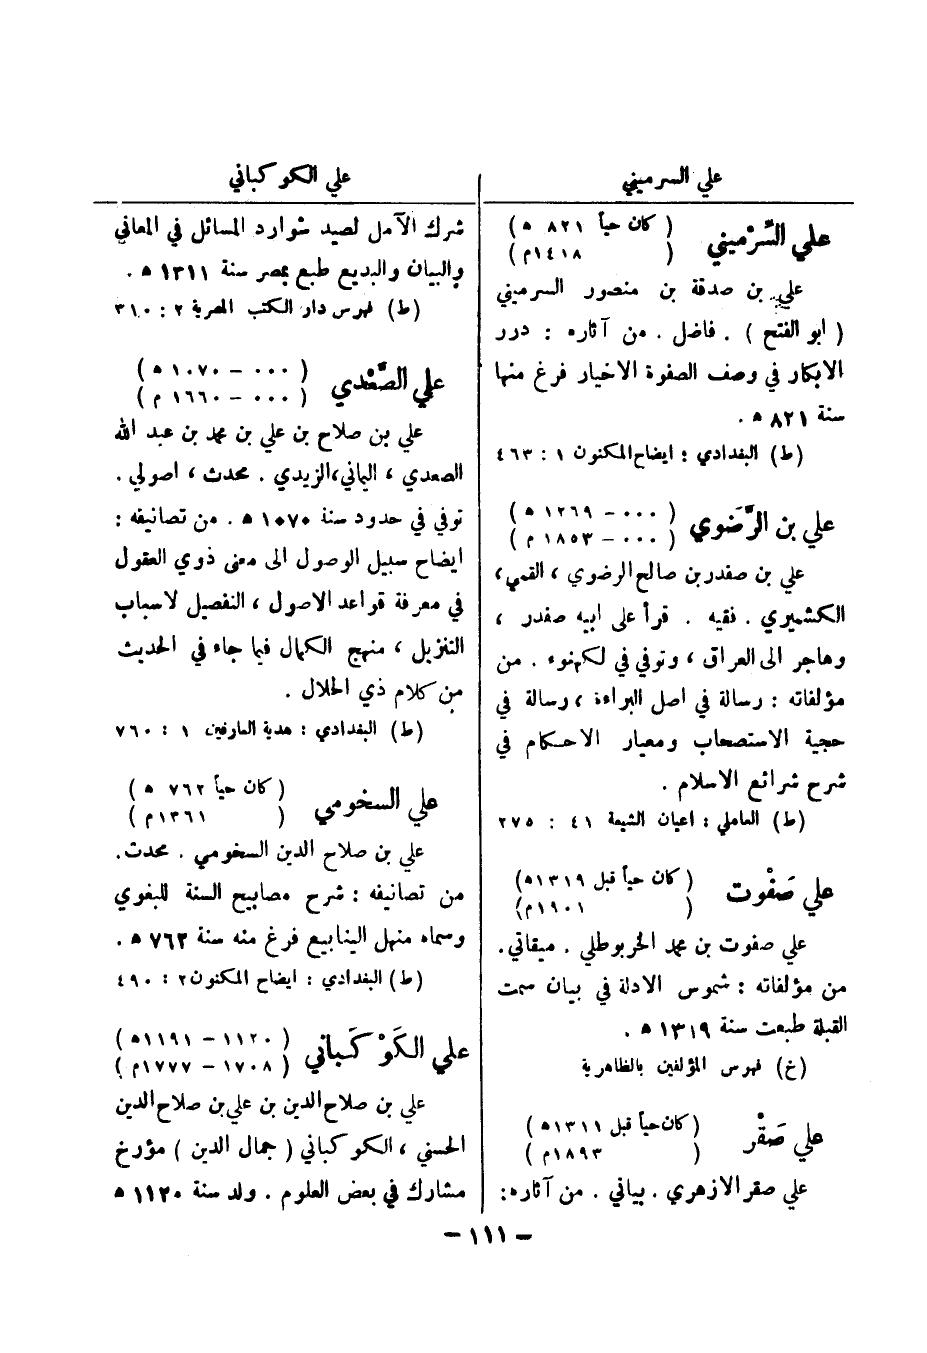 علي السرميني
علي السَّرْميني
( كان حياً ٨٢١ ه )
( ١٤١٨م )
علي بن صدقة بن منصور السرميني
( ابو الفتح ) . فاضل . من آثاره : درر
الابكار في وصف الصفوة الاخيار فرغ منها
سنة ٨٢١ ه .
(ط) البغدادي : ايضاح المكنون ١ : ٤٦٣
علي بن الرَّضَوي
( ٠٠٠ – ١٢٦٩ ه )
( ٠٠٠ – ١٨٥٣ م )
علي بن صفدر بن صالح الرضوي ، القمي ،
الكشميري . فقيه . قرأ على ابيه صفدر ،
وهاجر الى العراق ، وتوفي في لكهنوء . من
مؤلفاته : رسالة في اصل البراءة ، رسالة في
حجية الاستصحاب ومعيار الاحكام في
شرح شرائع الاسلام .
(ط) العاملي : اعيان الشيعة ٤١ : ٢٧٥
علي صَفْوت
( كان حياً قبل ١٣١٩ه )
( ١٩٠١م )
علي صفوت بن محمد الخربوطلي . ميقاتي .
من مؤلفاته : شموس الادلة في بيان سمت
القبلة طبعت سنة ١٣١٩ ه .
(خ) فهرس المؤلفين بالظاهرية
علي صَقْر
( كان حياً قبل ١٣١١ ه )
( ١٨٩٣م )
علي صقر الازهري . بياني . من آثاره :
علي الكوكباني
شرك الآمل لصيد شوارد المسائل في المعاني
والبيان والبديع طبع بمصر سنة ١٣١١ ه .
(ط) فهرس دار الكتب المصرية ٢ : ٣١٠
علي الصَّعْدي
( ٠٠٠ – ١٠٧٠ ه )
( ٠٠٠ – ١٦٦٠ م )
علي بن صلاح بن علي بن محمد بن عبد الله
الصعدي ، اليماني ، الزيدي . محدث ، اصولي .
توفي في حدود سنة ١٠٧٠ ه . من تصانيفه :
ايضاح سبيل الوصول الى معنى ذوي العقول
في معرفة قواعد الاصول ، التفصيل لاسباب
التنزيل ، منهج الكمال فيما جاء في الحديث
من كلام ذي الجلال .
(ط) البغدادي : هدية العارفين ١ : ٧٦٠
علي السخومي
( كان حياً ٧٦٢ ه )
( ١٣٦١م )
علي بن صلاح الدين السخومي . محدث .
من تصانيفه : شرح مصابيح السنة للبغوي
وسماه منهل الينابيع فرغ منه سنة ٧٦٢ ه .
(ط) البغدادي : ايضاح المكنون ٢ : ٤٩٠
علي الكَوْكَباني
( ١١٢٠ – ١١٩١ه )
( ١٧٠٨ – ١٧٧٧م )
علي بن صلاح الدين بن علي بن صلاح الدين
الحسني ، الكوكباني ( جمال الدين ) مؤرخ
مشارك في بعض العلوم . ولد سنة ١١٢٠ ه
– ١١١ –